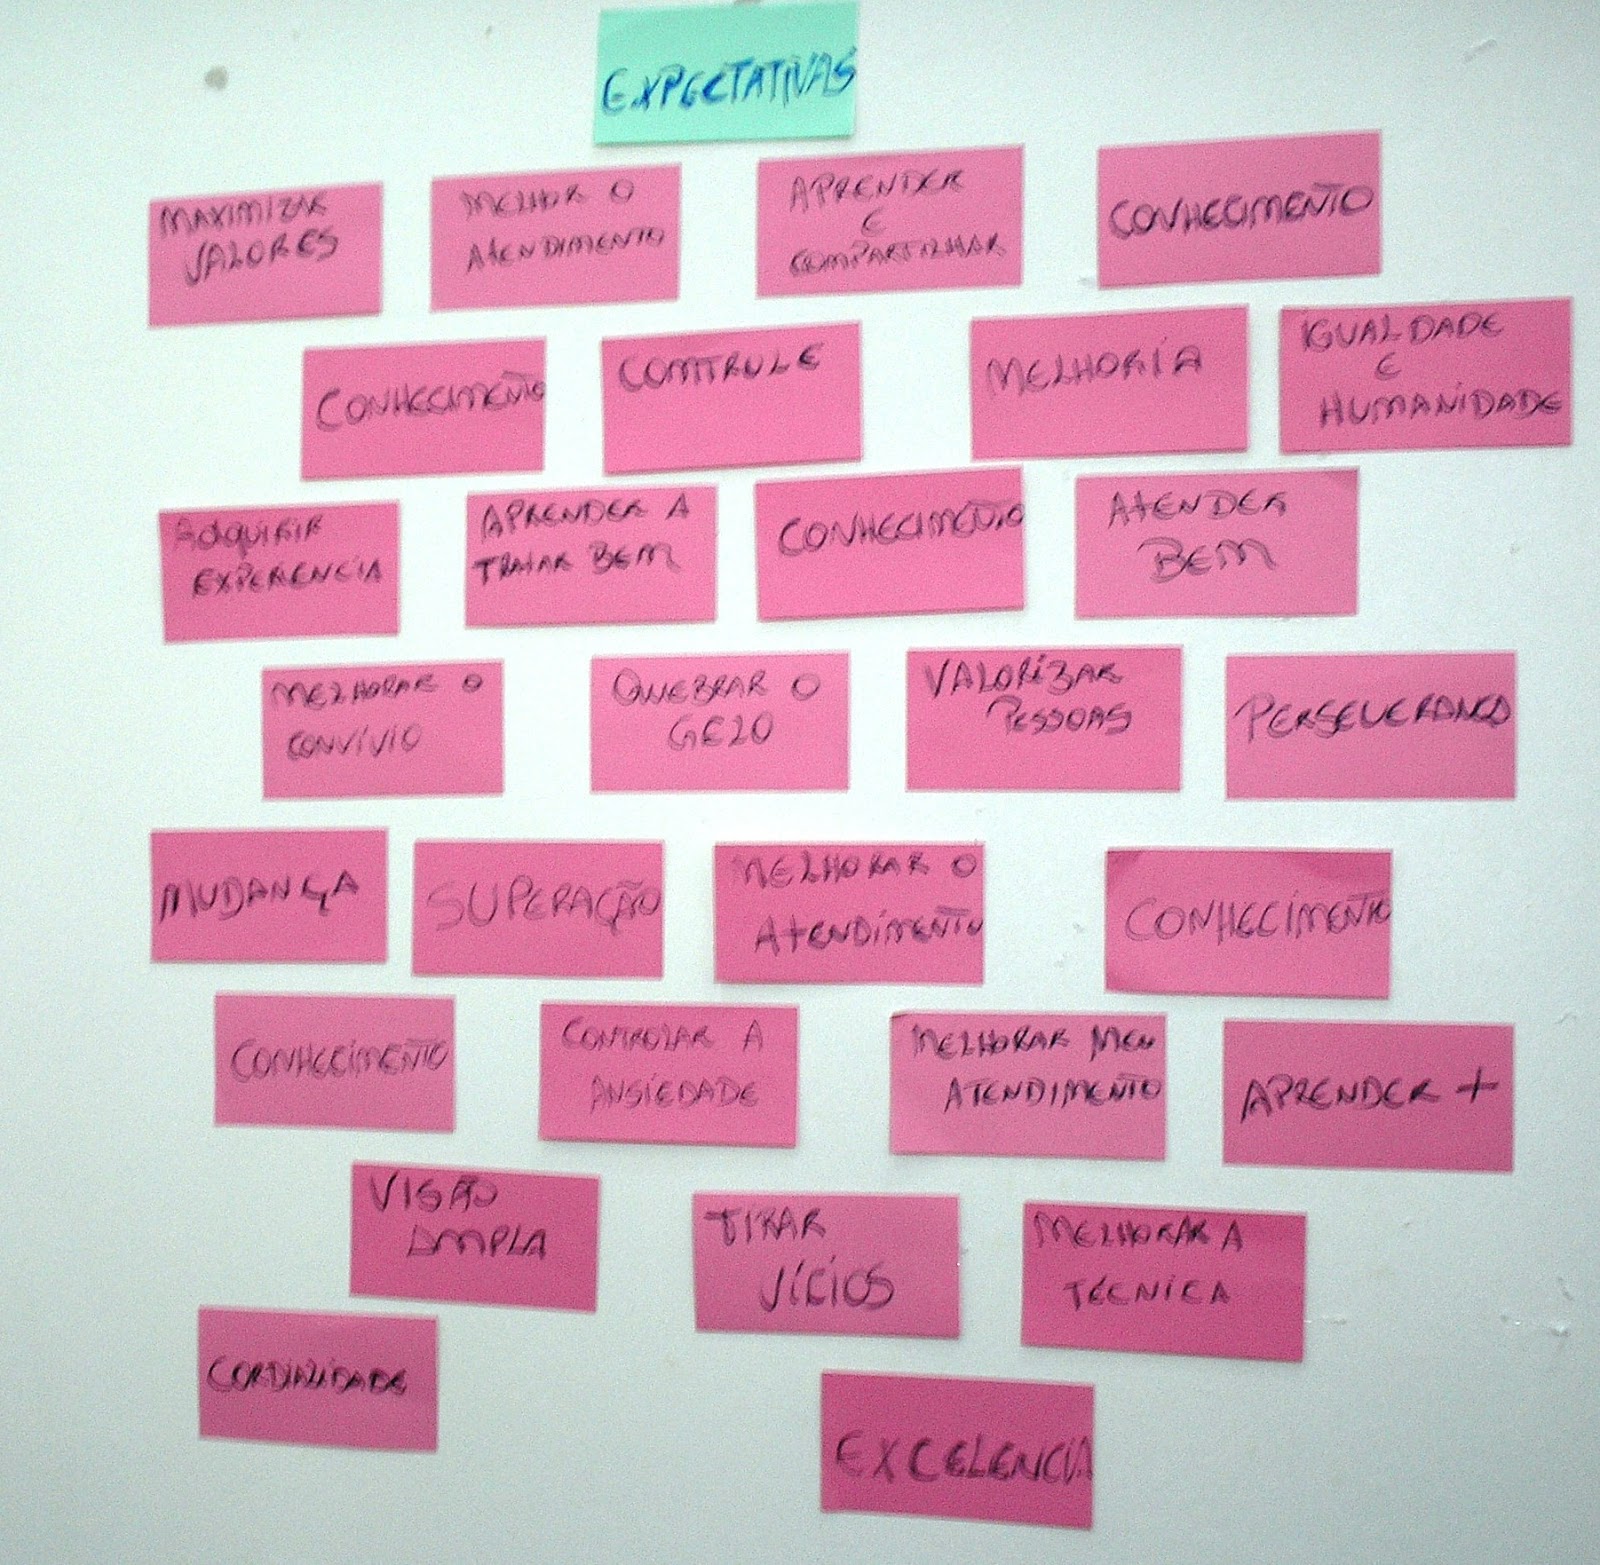 EXPECTATIVAS
MAXIMIZAR
VALORES
MELHOR O
AtENDIMENTO
APRENDER
E
COMPARTILHAR
CONHECIMENTO
CONHECIMENTO
COMTROLE
MELHORIA
IGUALDADE
E
HUMANIDADE
ADQUIRIR
EXPERIENCIA
APRENDER A
TRATAR BEM
CONHECIMENTO
AtENDER
BEM
MELHORAR O
CONVÍVIO
QUEBRAR O
GELO
VALORIZAR
PESSOAS
PERSEVERANÇA
MUDANÇA
SUPERAÇÃO
MELHORAR O
AtENDIMENTO
CONHECIMENTO
CONHECIMENTO
CONTROLAR A
ANSIEDADE
MELHORAR MEU
ATENDIMENTO
APRENDER +
VISÃO
AMPLA
TIRAR
VÍCIOS
MELHORAR A
TÉCNICA
CORDIALIDADE
EXCELENCIA